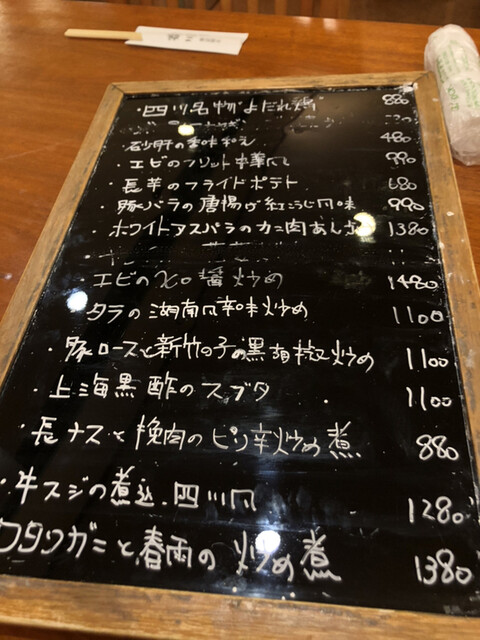 ・四川名物よだれ鶏 880
砂肝の香味和え 480
・エビのフリット中華風 990
・長芋のフライドポテト 680
・豚バラの唐揚げ紅こうじ風味 990
・ホワイトアスパラのカニ肉あん 1380
・エビのXO醤炒め 1480
・タラの湖南風辛味炒め 1100
・豚ロースと新竹の子の黒胡椒炒め 1100
・上海黒酢のスブタ 1100
・長ナスと挽肉のピリ辛炒め煮 880
・牛スジの煮込 四川風 1280
ワタリガニと春雨の炒め煮 1380